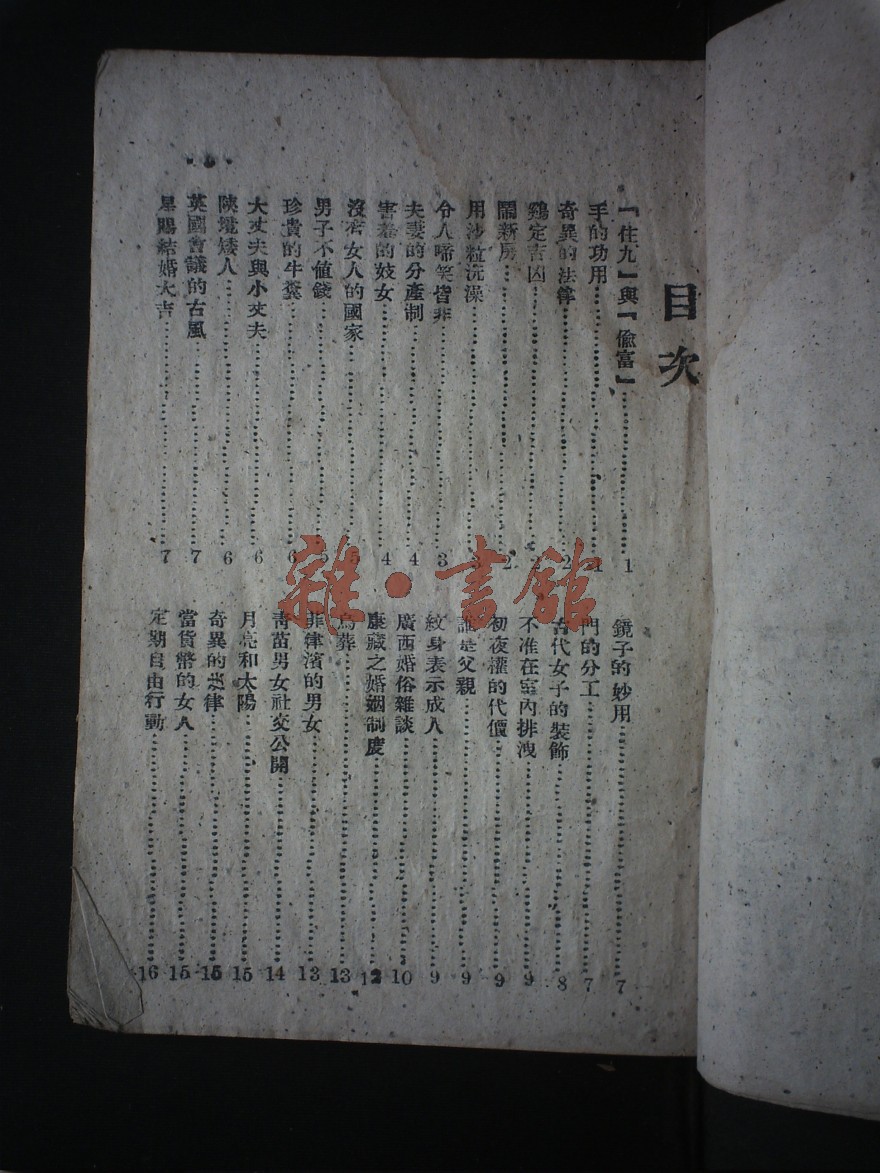 目次
『住九』與『偸富』 1
手的功用 1
奇異的法律 2
鷄定吉凶 2
鬧新房 2
用沙粒洗澡 3
令人啼笑皆非 3
夫妻的分產制 4
害羞的妓女 4
沒有女人的國家 5
男子不值錢 5
珍貴的牛糞 6
大丈夫與小丈夫 6
矮人 6
英國會議的古風 7
結婚大吉 7
鏡子的妙用 7
門的分工 7
古代女子的裝飾 8
不准在室內排洩 9
初夜權的代價 9
誰是父親 9
紋身表示成人 9
廣西婚俗雜談 10
康藏之婚姻制度 12
鳥葬 13
菲律濱的男女 13
靑苗男女社交公開 14
月亮和太陽 15
奇異的巡律 15
當貨幣的女人 15
定期自由行動 16
雜·書館